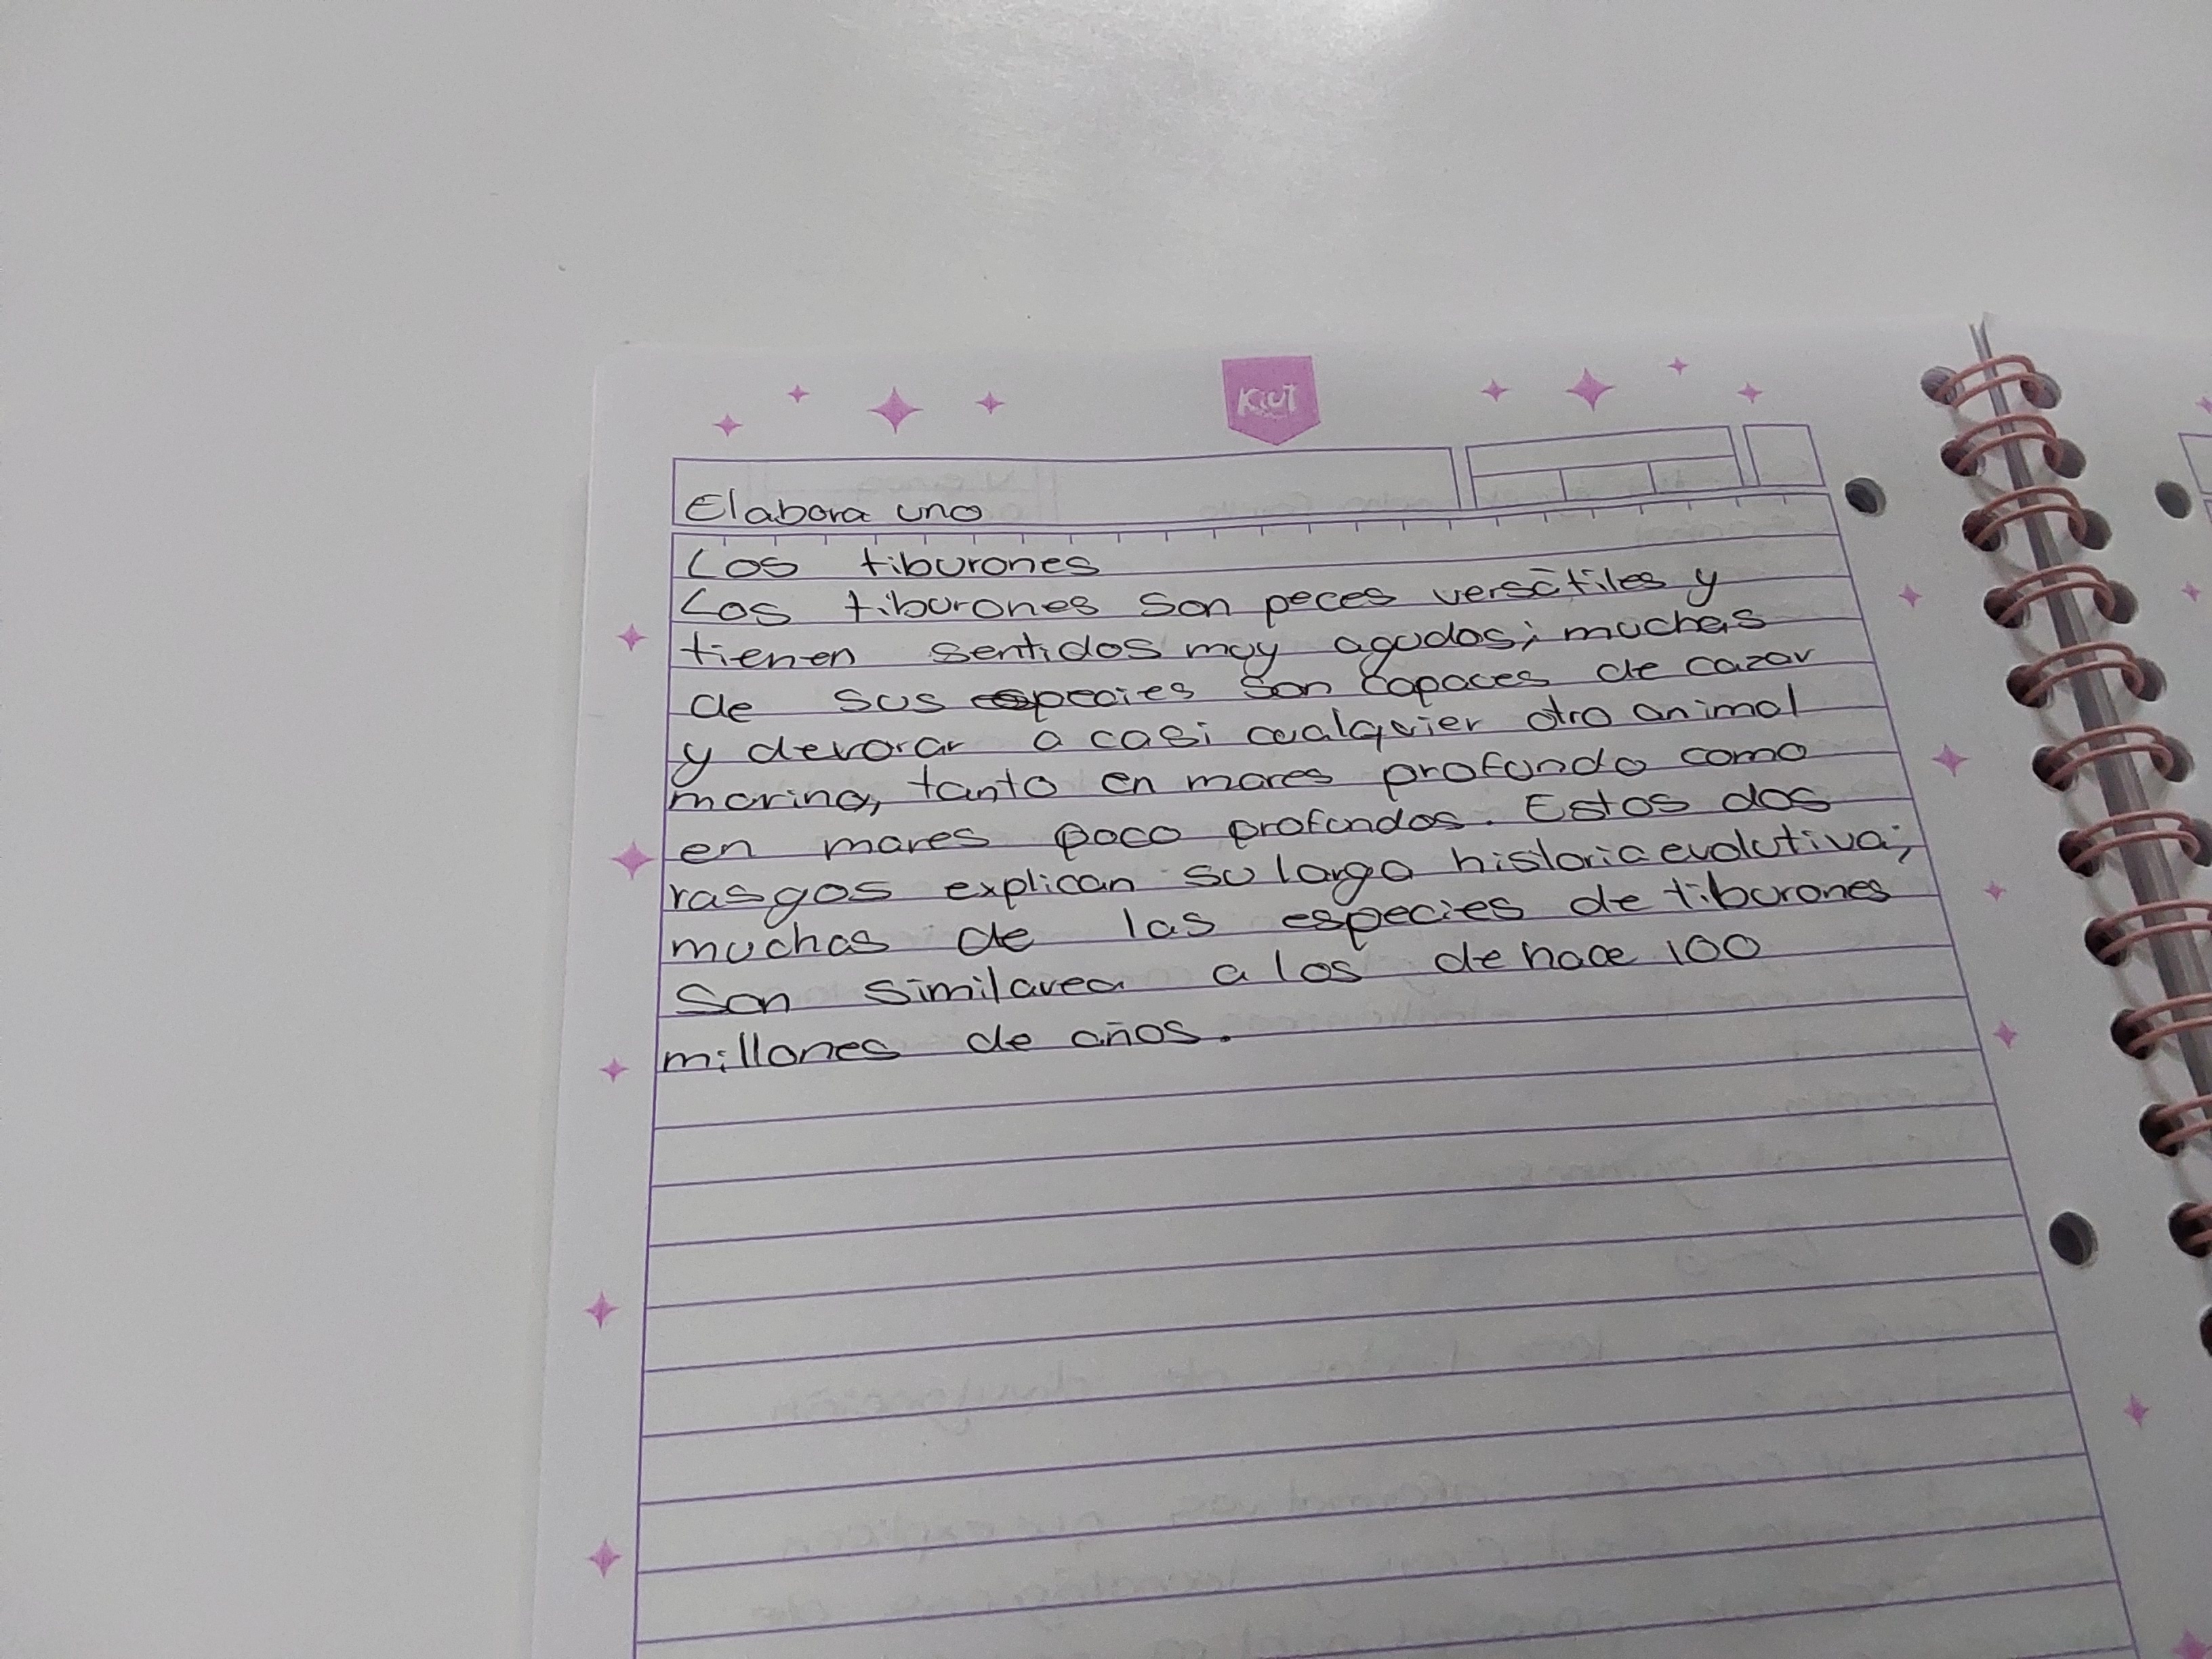 Kiut
Elabora uno
Los tiburones
Los tiburones son peces versátiles y
tienen sentidos muy agudos; muchas
de sus especies son capaces de cazar
y devorar a casi cualquier otro animal
marino, tanto en mares profundo como
en mares poco profundos. Estos dos
rasgos explican su larga historia evolutiva;
muchas de las especies de tiburones
son similarea a los de hace 100
millones de años.